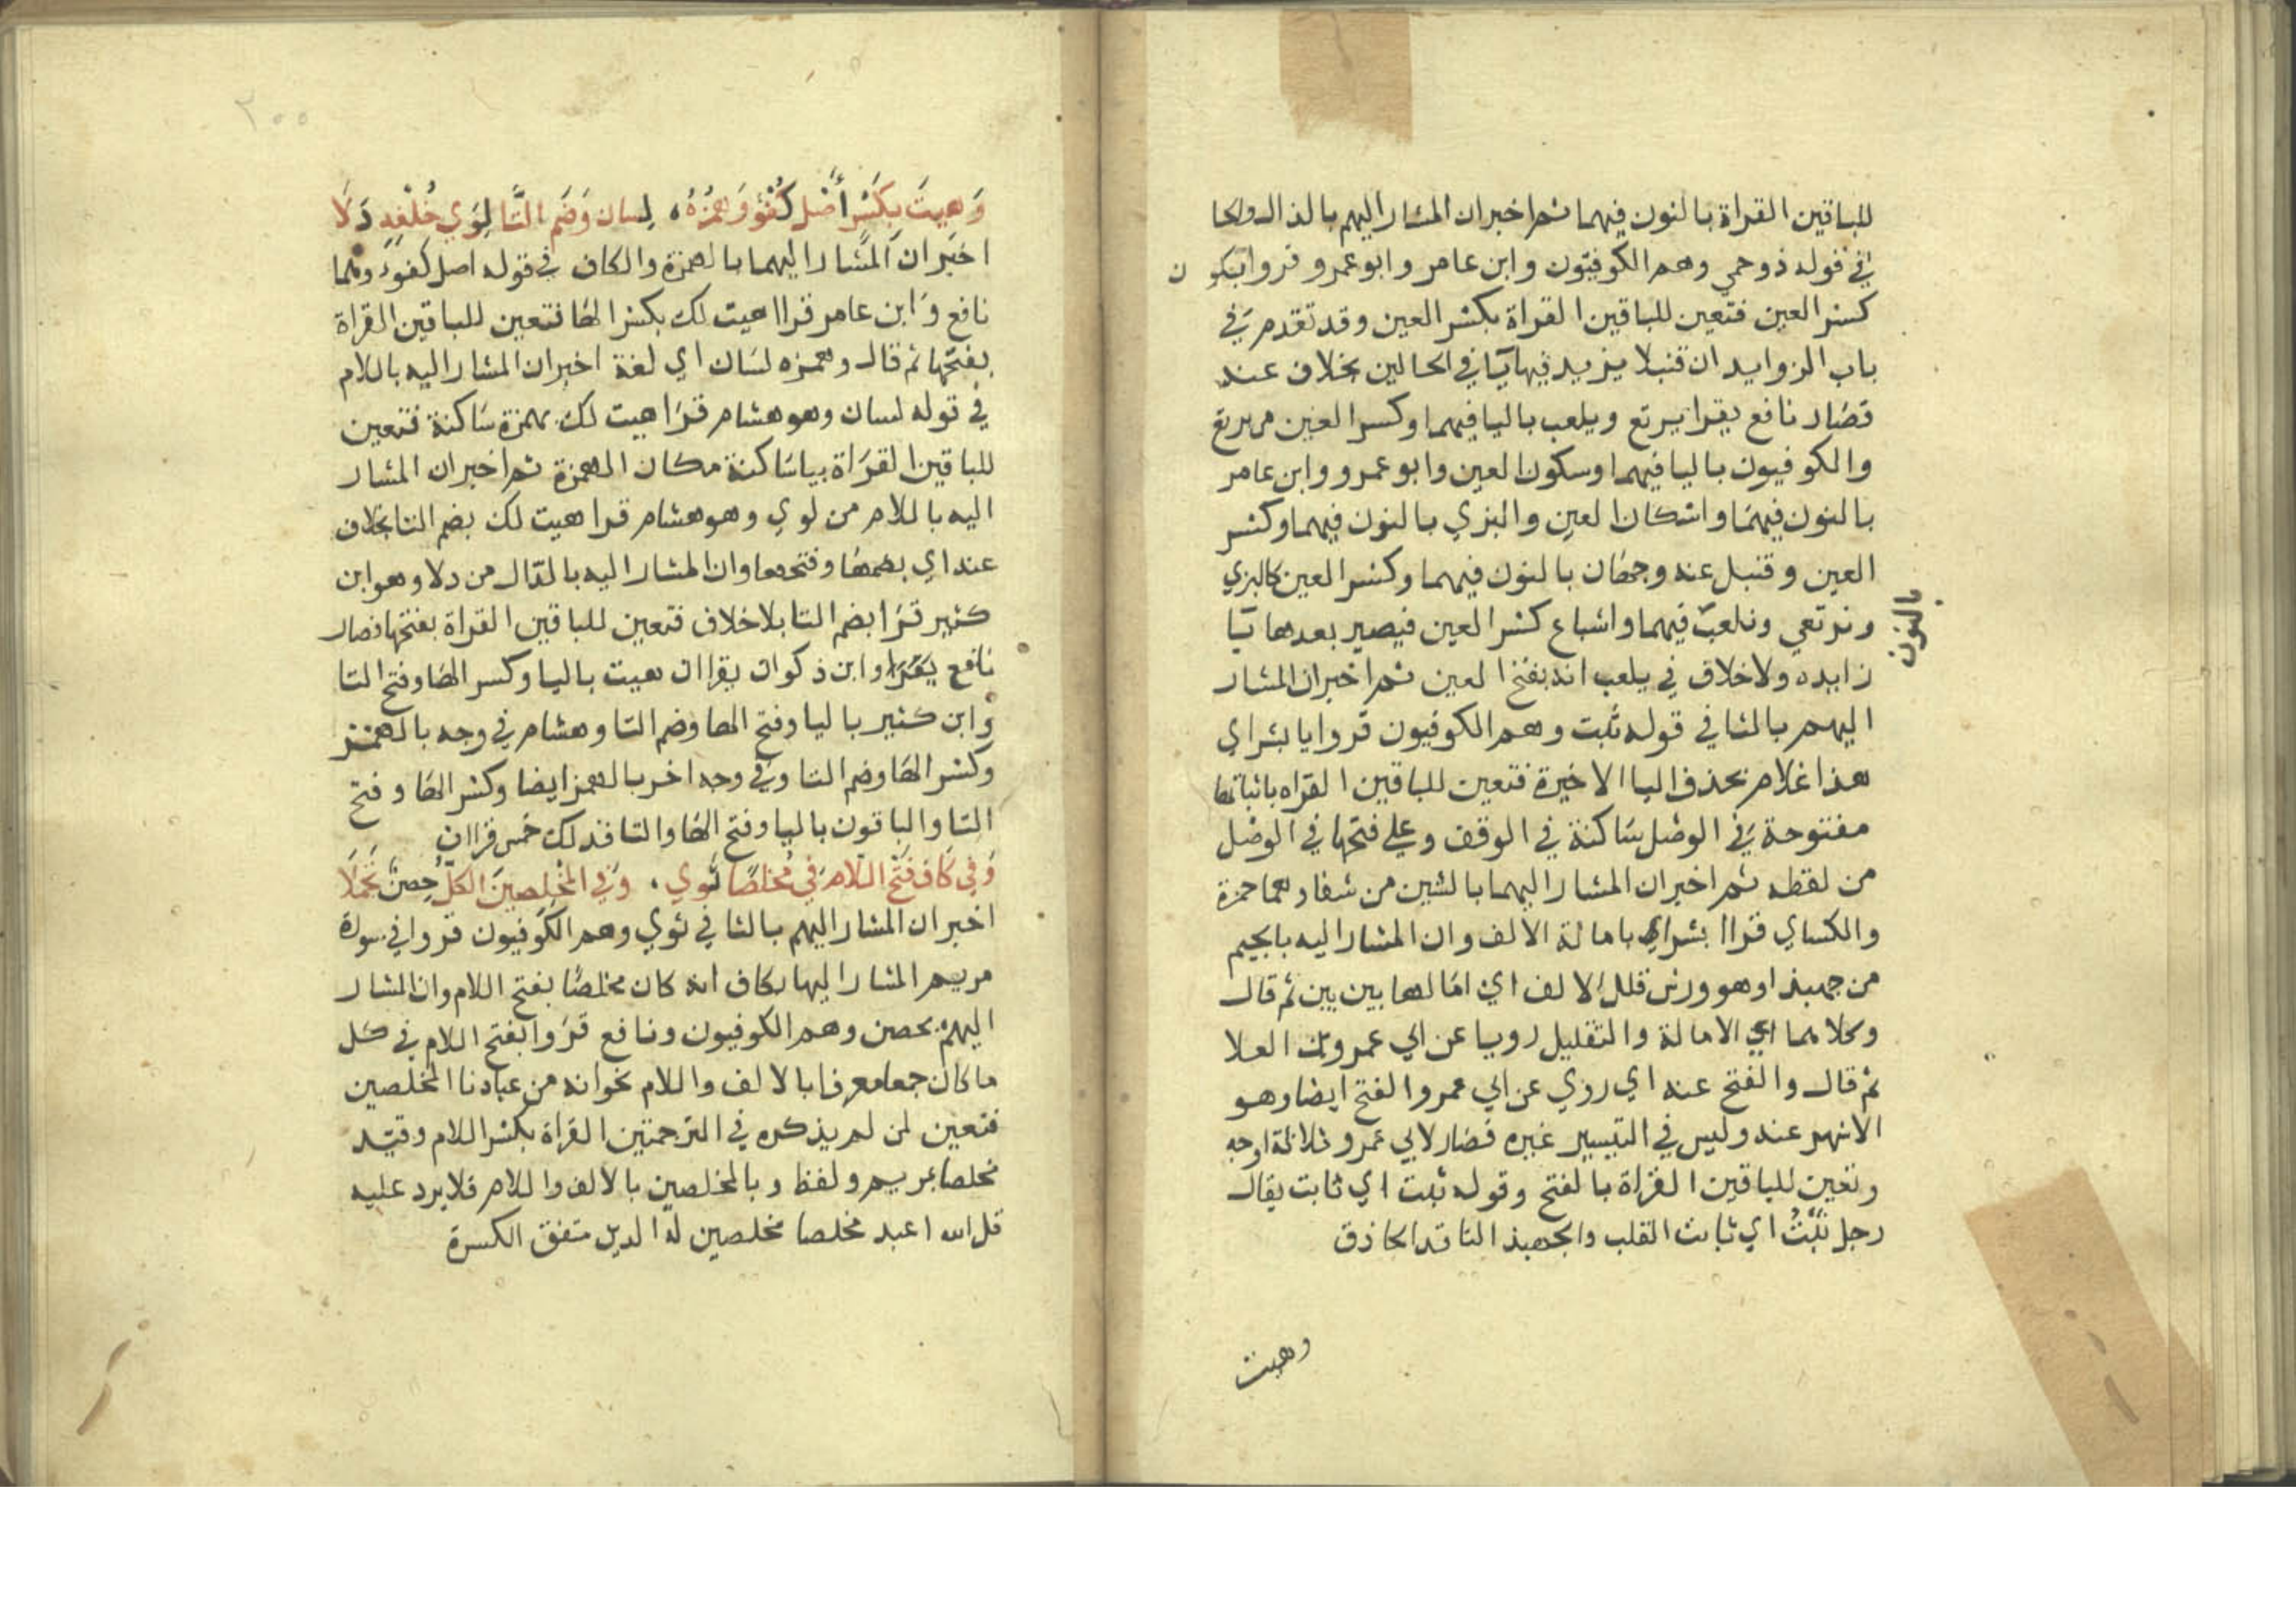 للباقين القراة بالنون فيهما ثم اخبر ان المشار اليهم بالذال والحا
في قوله ذو حمي وهم الكوفيون وابن عامر وابو عمرو قروا بسكون
كسر العين فتعين للباقين القراة بكسر العين وقد تقدم في
باب الزوايد ان قنبلا يزيد فيها يآ في الحالين بخلاف عنه
فصار نافع يقرا يرتع ويلعب باليا فيهما وكسر العين من يرتع
والكوفيون باليا فيهما وسكون العين وابو عمرو وابن عامر
بالنون فيهما واسكان العين والبزي بالنون فيهما وكسر
العين وقنبل عنه وجهان بالنون فيهما وكسر العين كالبزي
ونرتعي ونلعب فيهما واشباع كسر العين فيصير بعدها يآ
بالنون
زايده ولا خلاف في يلعب انه بفتح العين ثم اخبر ان المشار
اليهم بالثا في قوله ثبت وهم الكوفيون قروا يا بشراي
هذا غلام بحذف اليا الاخيرة فتعين للباقين القراه باثباتها
مفتوحة في الوصل ساكنة في الوقف وعلي فتحها في الوصل
من لفظه ثم اخبر ان المشار اليهما بالشين من شفا وهما حمزة
والكساي قراا بشراي بامالة الالف وان المشار اليه بالجيم
من جهبذا وهو ورش قلل الالف اي امالها بين بين ثم قال
وكلاهما اي الامالة والتقليل رويا عن ابي عمرو بن العلا
ثم قال والفتح عنه اي روي عن ابي عمرو الفتح ايضا وهو
الاشهر عنه وليس في التيسير غيره فصار لابي عمرو ثلاثة اوجه
وتعين للباقين القراة بالفتح وقوله ثبت اي ثابت يقال
رجل ثبت اي ثابت القلب والجهبذ الناقد الحاذق
وهيت
٢٠٠
وَهيتَ بكسر أصل كفؤ وَهمزُهُ، لِسان وَضم التَّا لِوَي خُلْفه دَلَا
اخبر ان المشار اليهما بالهمزة والكاف في قوله اصل كفوء وهما
نافع وابن عامر قراا هيت لك بكسر الها فتعين للباقين القراة
بفتحها ثم قال وهمزه لسان اي لغة اخبر ان المشار اليه باللام
في قوله لسان وهو هشام قرا هيت لك بهمزة ساكنة فتعين
للباقين القراة بيا ساكنة مكان الهمزة ثم اخبر ان المشار
اليه باللام من لوي وهو هشام قرا هيت لك بضم التا بخلاف
عنه اي بضمها وفتحها وان المشار اليه بالدال من دلا وهو ابن
كثير قرا بضم التا بلا خلاف فتعين للباقين القراة بفتحها فصار
نافع يقرا وابن ذكوان يقراان هيت باليا وكسر الها وفتح التا
وابن كثير باليا وفتح الها وضم التا وهشام في وجه بالهمز
وكسر الها وضم التا وفي وجه اخر بالهمز ايضا وكسر الها وفتح
التا والباقون باليا وفتح الها والتا فذلك خمس قراات
وَفي كاف فتح اللام في مُخلصًا ثوي، وَفي المُخْلِصينَ الكلّ حِصنٌ تجملَا
اخبر ان المشار اليهم بالثا في ثوي وهم الكوفيون قروا في سورة
مريم المشار اليها بكاف انه كان مخلصًا بفتح اللام وان المشار
اليهم بحصن وهم الكوفيون ونافع قروا بفتح اللام في كل
ما كان جمعا معرفا بالالف واللام نحو انه من عبادنا المخلصين
فتعين لمن لم يذكره في الترجمتين القراة بكسر اللام وقيد
مخلصا بمريم ولفظ وبالمخلصين بالالف واللام فلا يرد عليه
قل الله اعبد مخلصا مخلصين له الدين متفق الكسرة